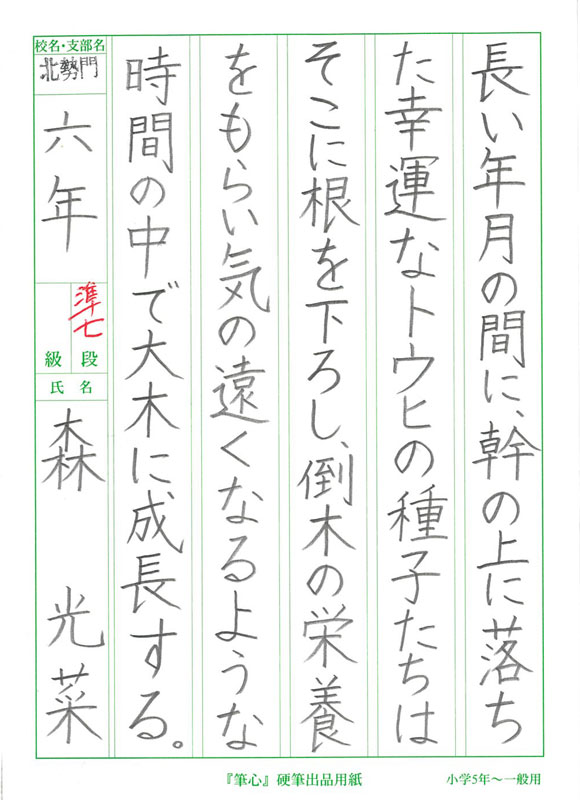 長い年月の間に、幹の上に落ち
た幸運なトウヒの種子たちは
そこに根を下ろし、倒木の栄養
をもらい気の遠くなるような
時間の中で大木に成長する。
校名・支部名
北勢門
六年
準七
段
級
氏名
森 光菜
『筆心』硬筆出品用紙
小学5年〜一般用